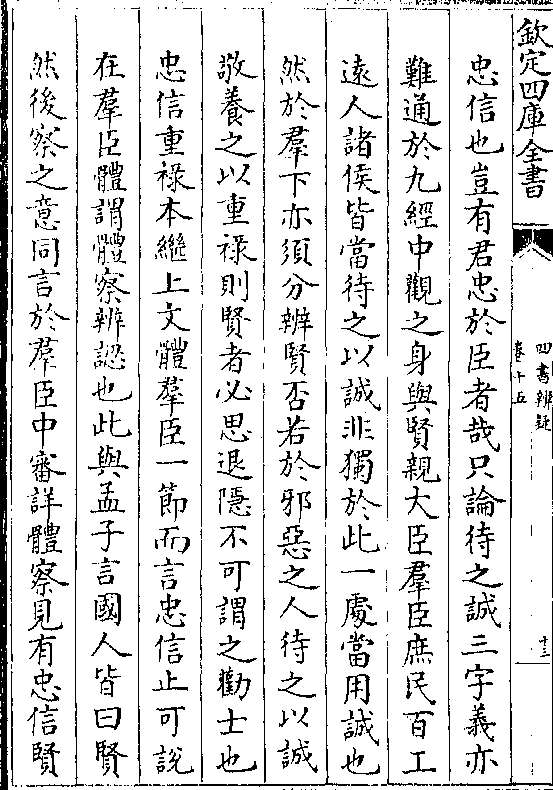 欽定四庫全書
四書辨疑
卷十五
十三
忠信也豈有君忠於臣者哉只論待之誠三字義亦
難通於九經中觀之身與賢親大臣羣臣庶民百工
遠人諸侯皆當待之以誠非獨於此一處當用誠也
然於羣下亦須分辨賢否若於邪惡之人待之以誠
敬養之以重祿則賢者必思退隱不可謂之勸士也
忠信重祿本繼上文體羣臣一節而言忠信止可說
在羣臣體謂體察辨認也此與孟子言國人皆曰賢
然後察之意同言於羣臣中審詳體察見有忠信賢